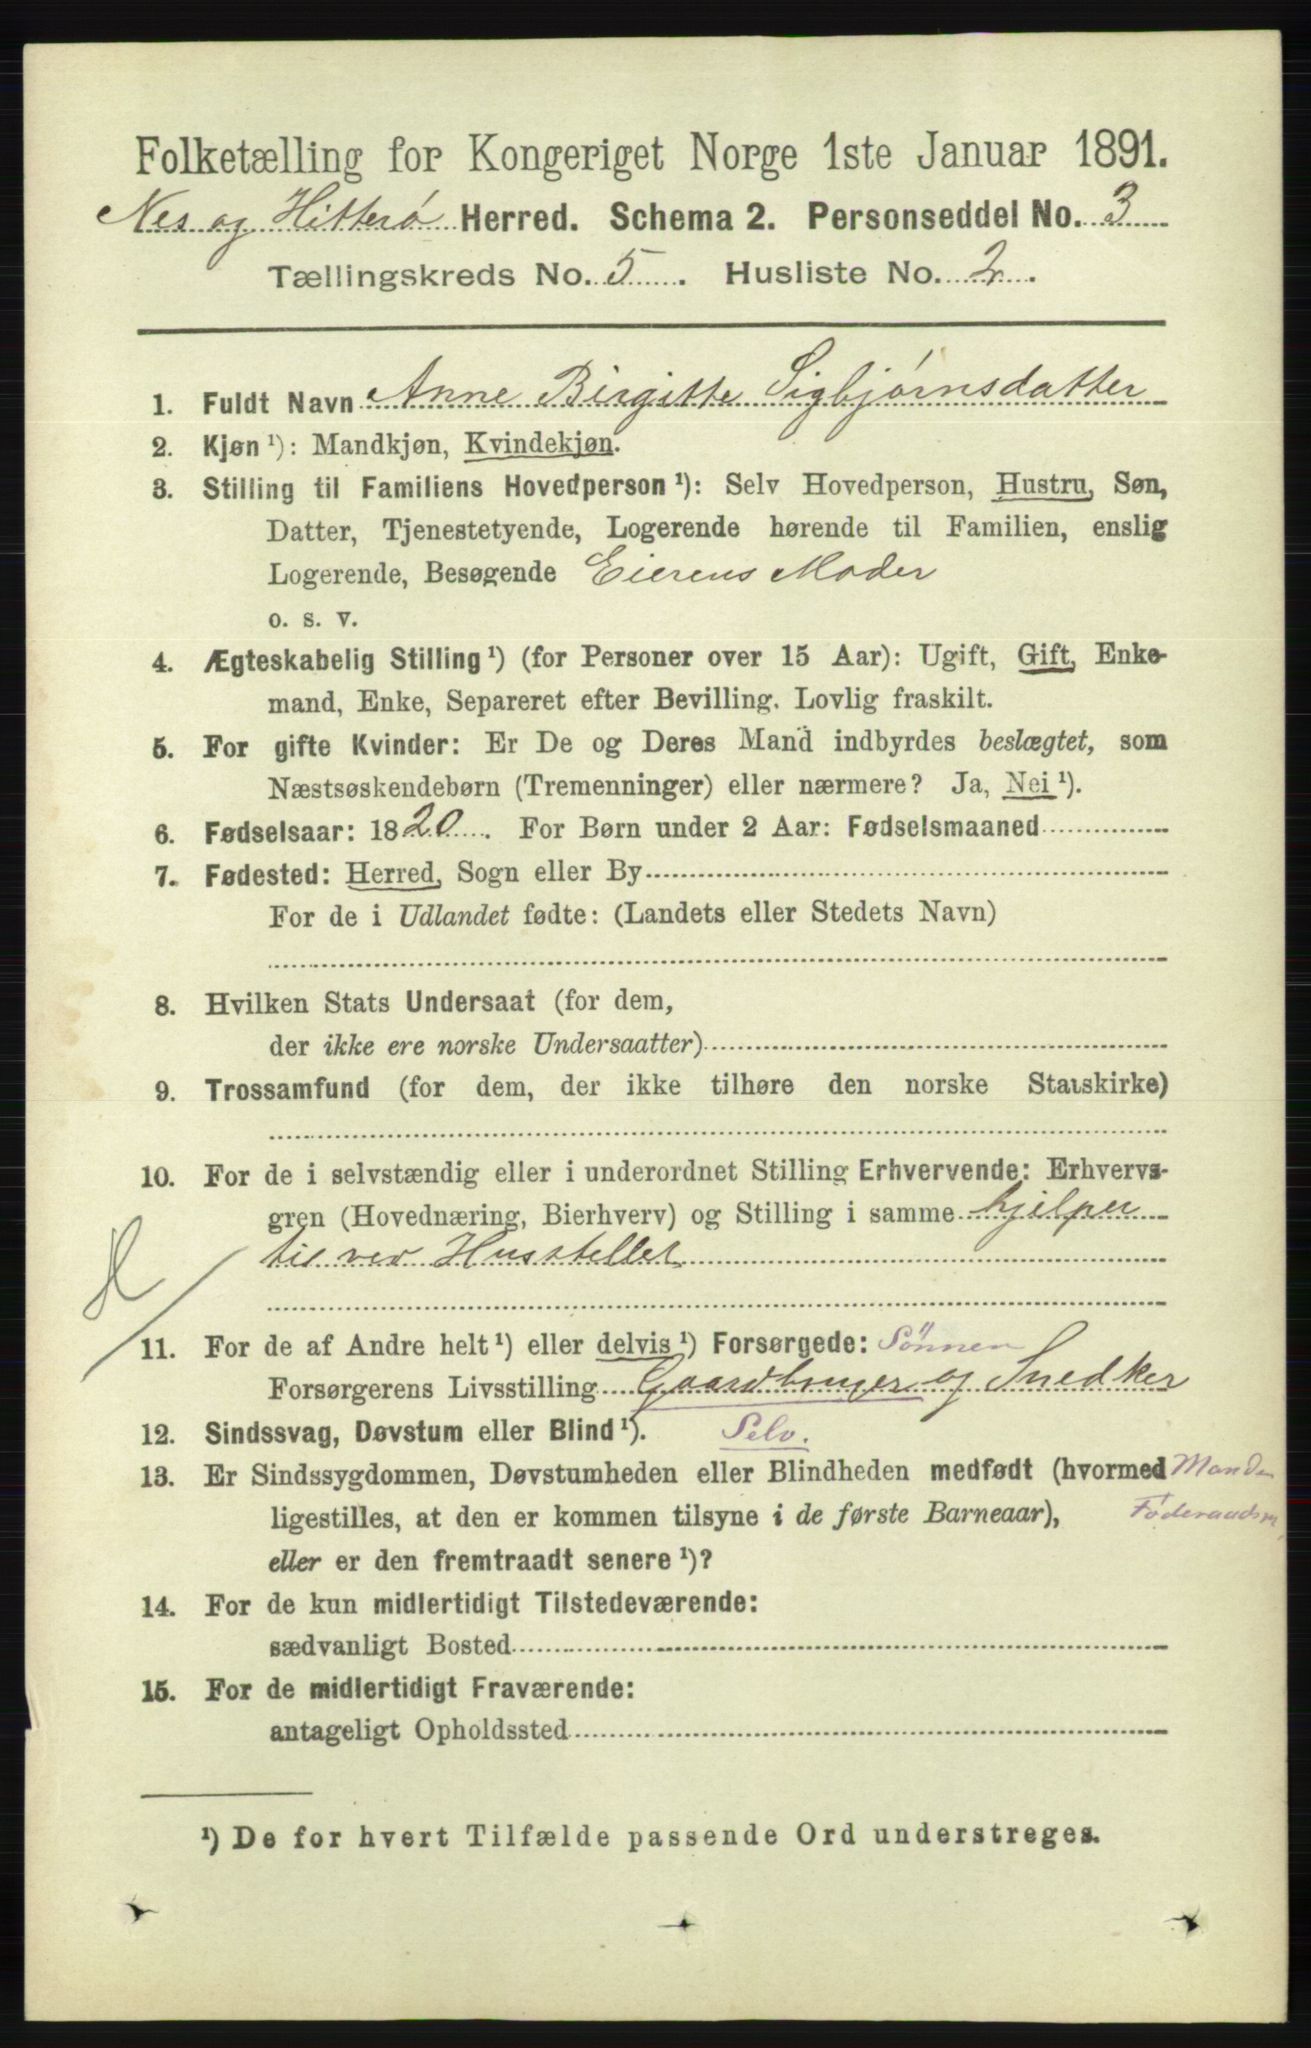 Folketælling for Kongeriget Norge 1ste Januar 1891.
Nes og Hitterø Herred. Schema 2. Personseddel No. 3
Tællingskreds No. 5. Husliste No. 2.
1. Fuldt Navn Anne Birgitte Sigbjørnsdatter
2. Kjøn ¹): Mandkjøn, Kvindekjøn.
3. Stilling til Familiens Hovedperson ¹): Selv Hovedperson, Hustru, Søn,
Datter, Tjenestetyende, Logerende hørende til Familien, enslig
Logerende, Besøgende Eierens Moder
o. s. v.
4. Ægteskabelig Stilling ¹) (for Personer over 15 Aar): Ugift, Gift, Enke-
mand, Enke, Separeret efter Bevilling. Lovlig fraskilt.
5. For gifte Kvinder: Er De og Deres Mand indbyrdes beslægtet, som
Næstsøskendebørn (Tremenninger) eller nærmere? Ja, Nei ¹).
6. Fødselsaar: 1820. For Børn under 2 Aar: Fødselsmaaned
7. Fødested: Herred, Sogn eller By
For de i Udlandet fødte: (Landets eller Stedets Navn)
8. Hvilken Stats Undersaat (for dem,
der ikke ere norske Undersaatter)
9. Trossamfund (for dem, der ikke tilhøre den norske Statskirke)
10. For de i selvstændig eller i underordnet Stilling Erhvervende: Erhvervs-
gren (Hovednæring, Bierhverv) og Stilling i samme hjelper
til ved Husstellet
11. For de af Andre helt ¹) eller delvis ¹) Forsørgede: Sönnen
Forsørgerens Livsstilling Gaardbruger og Snedker
12. Sindssvag, Døvstum eller Blind ¹). Selv.
13. Er Sindssygdommen, Døvstumheden eller Blindheden medfødt (hvormed Manden
ligestilles, at den er kommen tilsyne i de første Barneaar), Föderaadsm.
eller er den fremtraadt senere ¹)?
14. For de kun midlertidigt Tilstedeværende:
sædvanligt Bosted
15. For de midlertidigt Fraværende:
antageligt Opholdssted
¹) De for hvert Tilfælde passende Ord understreges.